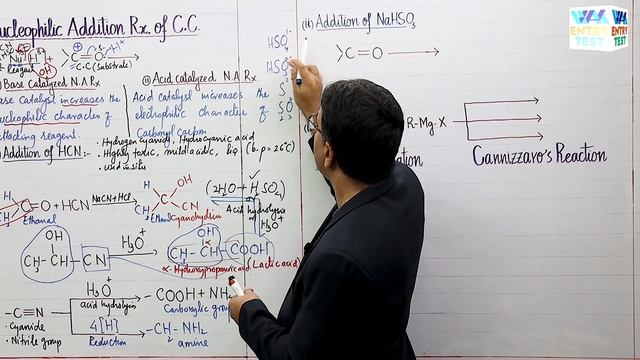 Nucleophilic Addition Rx. of C.C.
Nu⁻ H⁺
Reagent
OH
>C=O
C.C (Substrate)
Base Catalyzed N.A Rx
Base Catalyst increases the
nucleophilic character of
attacking reagent.
(ii) Acid catalyzed N.A.Rx
Acid catalyst increases
the
electrophilic character of
Carbonyl Carbon
HSO
HSO
S
SO
Addition of HCN:
• Hydrogen cyanide, Hydrocyanic acid
• Highly toxic, mild acidic, liq (b.p=26°C)
• Used in situ
C=O + HCN
NaCN+HCl
Ethanal
OH
CH₃
H
C
CN
Ethanal Cyanohydrin
(2H₂O + H₂SO₄)
Acid hydrolysis
H₃O⁺
OH
CH₃-CH-CN
H₃O⁺
OH
α
CH₃-CH-COOH
α-Hydroxypropanoic acid (Lactic acid)
-C≡N
• Cyanide
• Nitrile group
H₃O⁺
acid hydrolysis
-COOH + NH
Carboxylic group
4[H]
Reduction
-CH₂-NH₂
amine
(iii) Addition of NaHSO₃
>C=O
R-Mg-X
Cannizzaro's Reaction
ENTRY
TEST
ENTRY
TEST